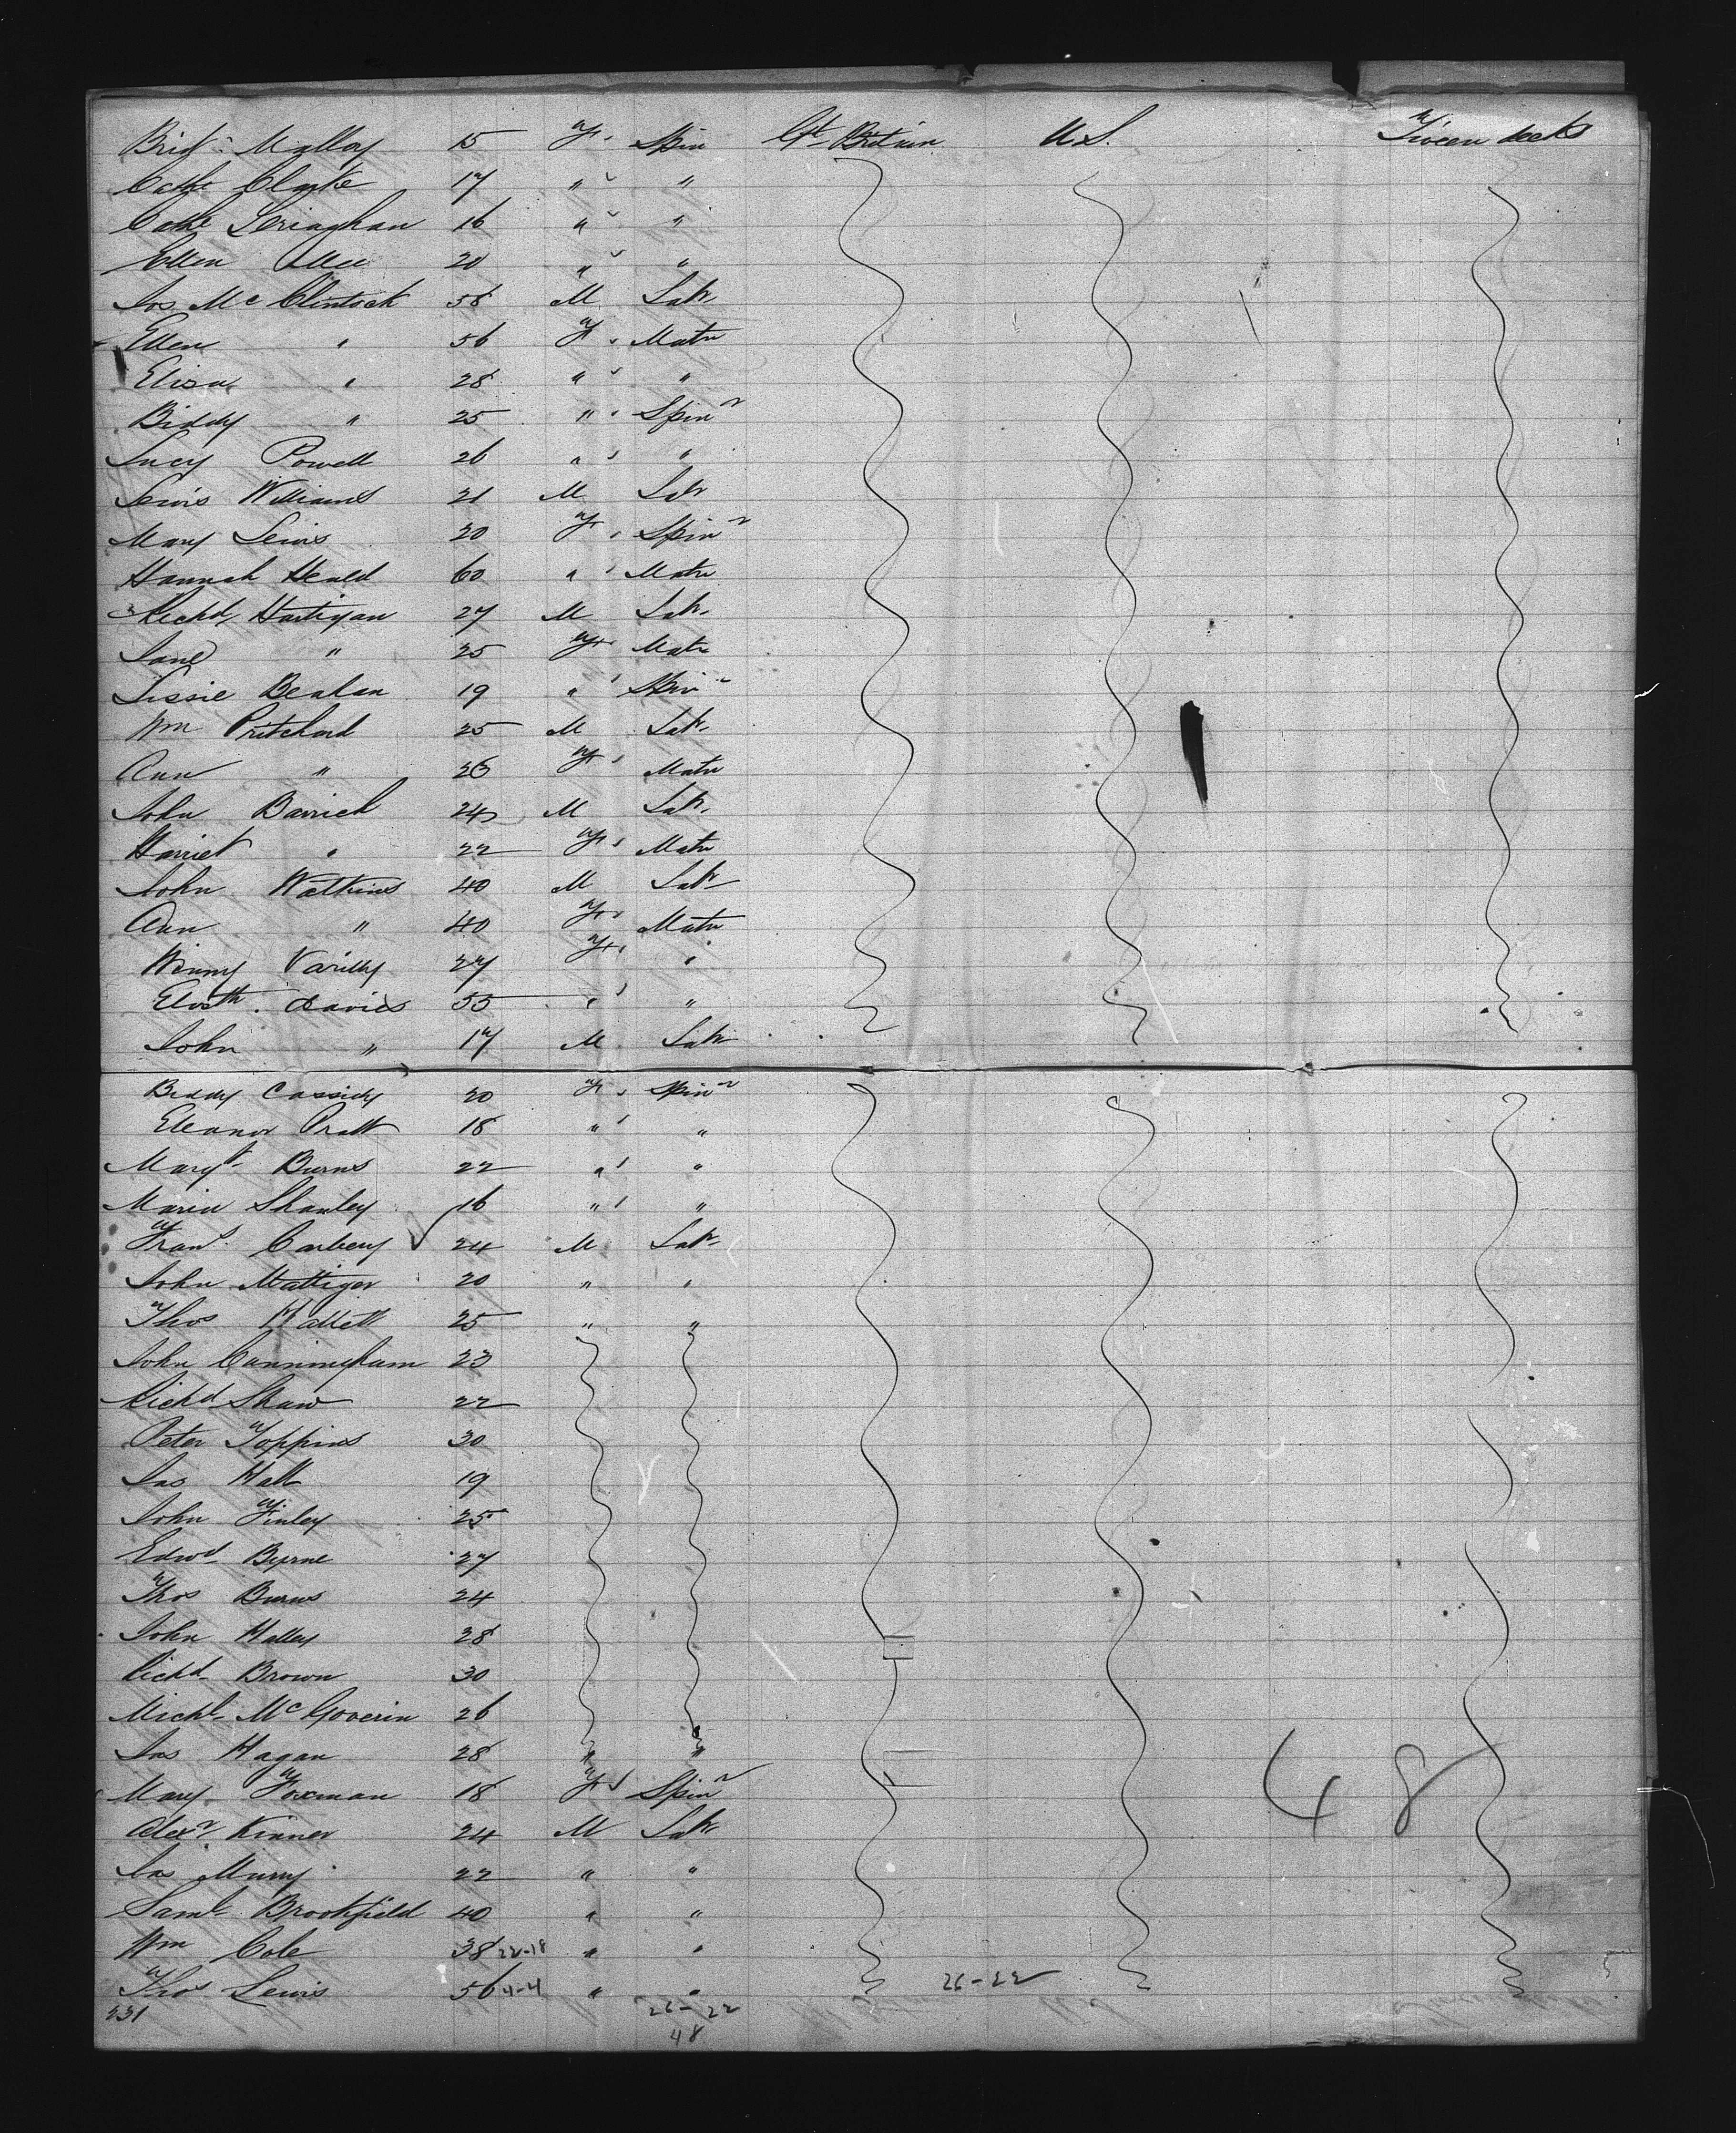 Brid. Malloy 15 F Spin Gt Britain U S. Tween decks
Cathe Clarke 17 " "
Cathe Geriaghan 16 " "
Ellen Mee 20 " "
Jos. Mc Clintock 58 M Labr
Ellen " 56 F Matn
Eliza " 28 " "
Biddy " 25 " Spinr
Lucy Powell 26 " "
Lewis Williams 21 M Labr
Mary Lewis 20 F Spinr
Hannah Heald 60 " Matn
Richd Hartigan 27 M Labr
Jane " 25 F Matn
Lissie Beahan 19 " Spinr
Wm Pritchard 25 M Labr
Ann " 26 F Matn
John 24 M Labr
Harriet " 22 F Matn
John Watkins 40 M Labr
Ann " 40 F Matn
Winny Varilly 27 F "
Elizth. Davies 55 " "
John " 17 M Labr
Biddy Cassidy 20 F Spinr
Eleanor Pratt 18 " "
Margt Burns 22 " "
Maria Shanley 16 " "
Frans. Carbery 24 M Labr
John Mattiger 20 " "
Thos Hallett 25 " "
John Cunningham 23
Richd Shaw 22
Peter Toppins 30
Jas Hall 19
John Finley 25
Edwd Byrne 27
Thos Burns 24
John Halley 28
Richd Brown 30
Michl McGoverin 26
Jas Hagan 28 " "
Mary Foxman 18 F Spinr
Alexr Kinner 24 M Labr
48
Jas Murry 22 " "
Saml Brookfield 40 " "
Wm Cole 38 22-18 " "
Thos Lewis 56 4-4 " " 26-22
231 26-22
48